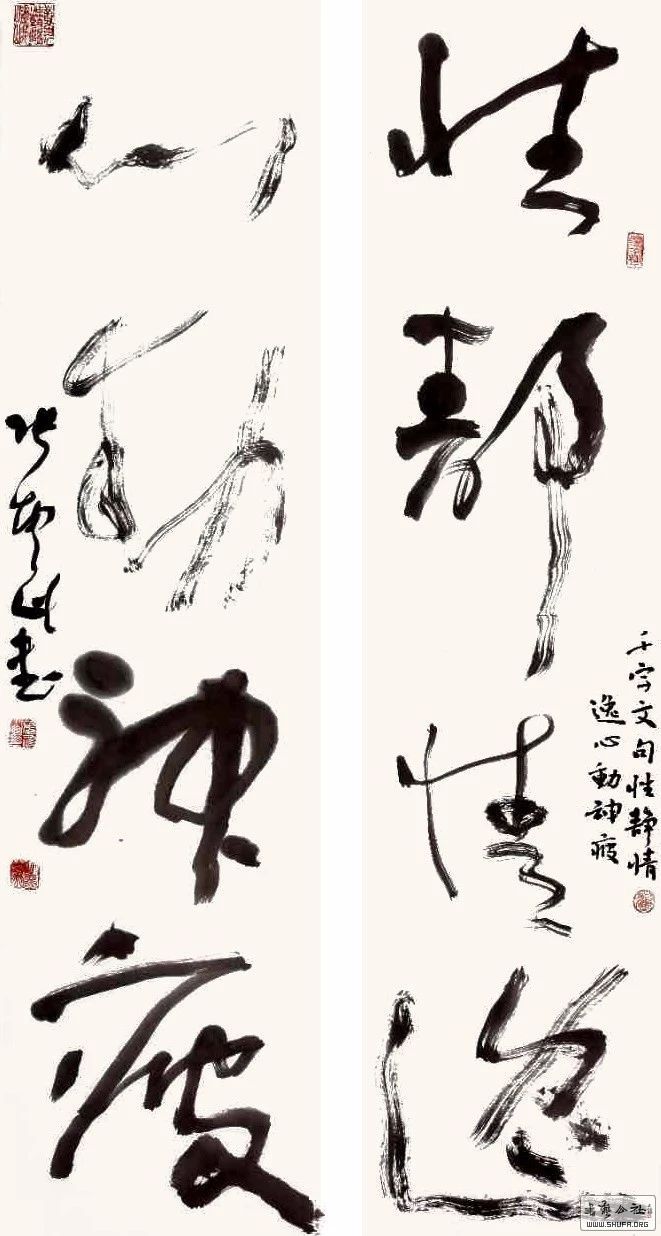 性静情逸
千字文句性静情
逸心動神疲
心動神疲
WWW.SHUFA.ORG